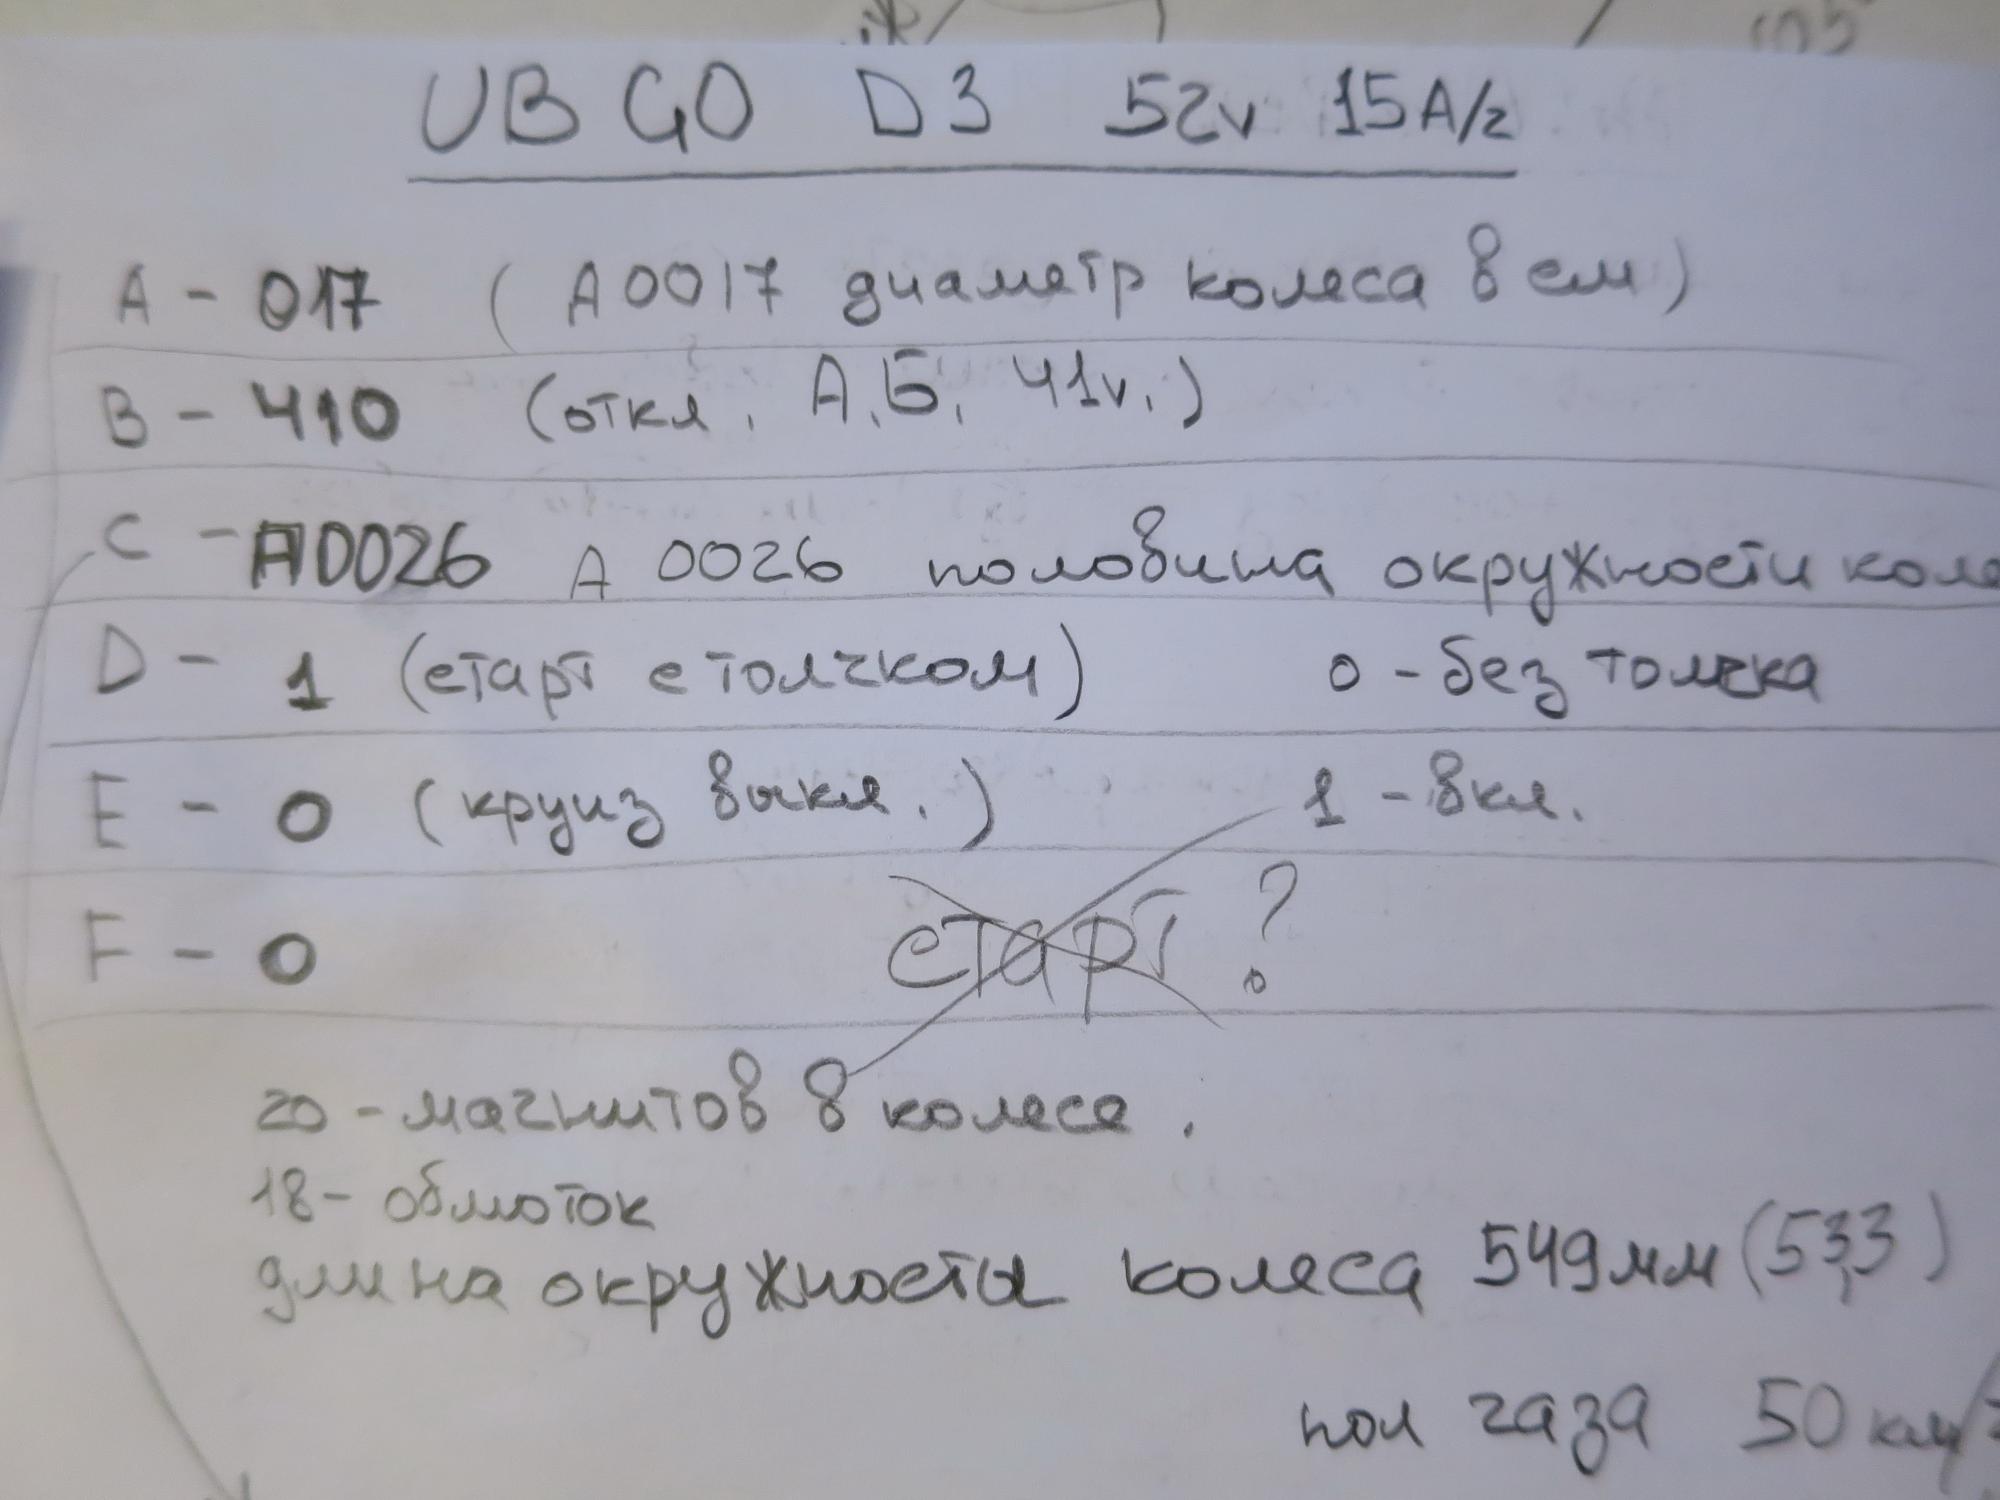 UB GO D3 52v 15А/г
A - 017 (А0017 диаметр колеса в см)
B - 410 (откл. А.Б. 41v.)
C - A0026 A 0026 половина окружности коле
D - 1 (старт с толчком) 0 - без толчка
E - 0 (круиз выкл.) 1 - вкл.
F - 0 старт ?
20 - магнитов в колесе.
18 - обмоток
длина окружности колеса 549мм (53,3)
пол газа 50 км/